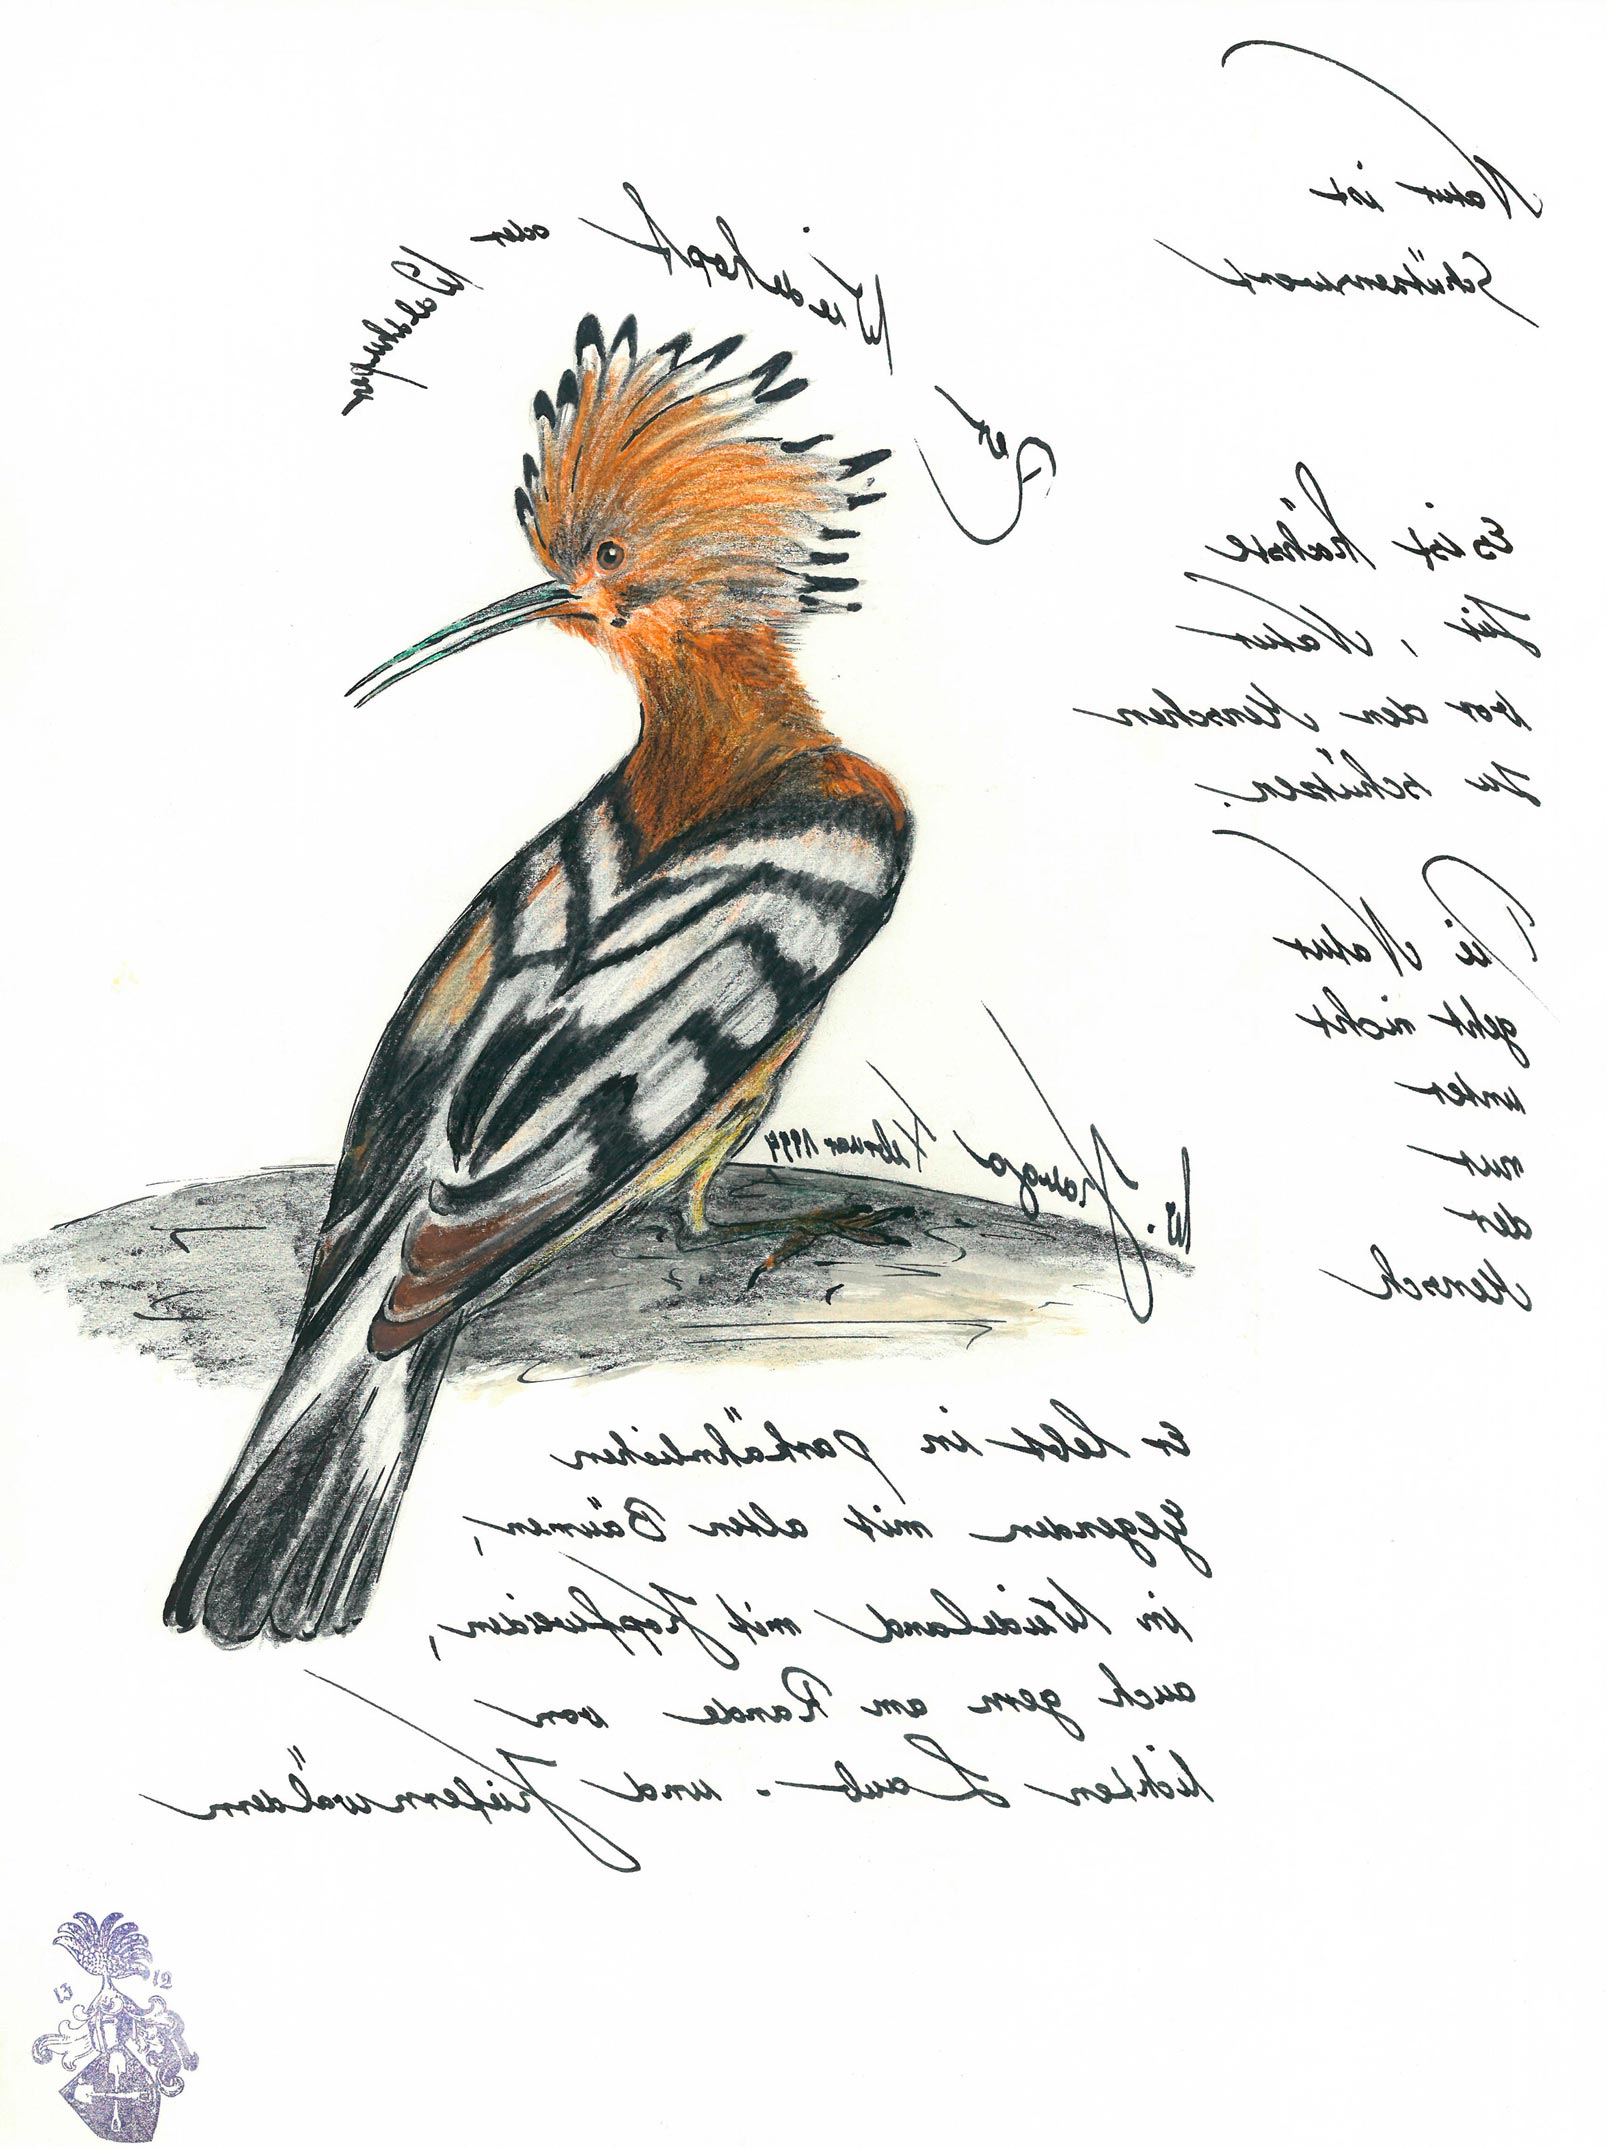 Natur ist
Schützenswert
Der Wiedehopf oder
Es ist höchste
Zeit, Natur
vor den Menschen
zu schützen.
Die Natur
geht nicht
unter
nur
der
Mensch
W. Februar 1994
Er lebt in parkähnlichen
Gegenden mit alten Bäumen,
in Weideland mit Kopfweiden,
auch gern am Rande von
lichten Laub- und Kiefernwäldern
13 12